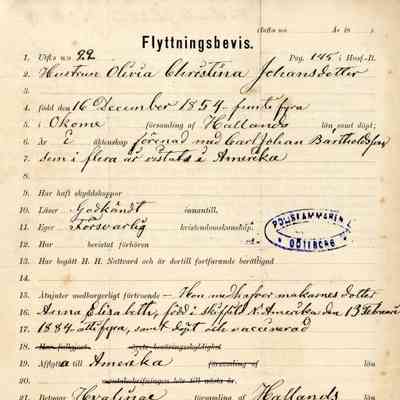 (Infts no År 18 ).
Flyttningsbevis.
1. Utfts no 92. Pag. 145 i Husf.-B.
2. Hustrun Olivia Christina Johansdotter
3.
4. född den 16 December 1854 femtifyra
5. i Okome församling af Hallands län samt döpt;
6. Är E äktenskap förenad med Carl Johan Bartholdsson
7. som i flera år vistats i Amerika
8.
9. Har haft skyddskoppor
10. Läser Godkändt innantill.
11. Eger Försvarlig kristendomskunskap;
12. Har bevistat förhören
13. Har begått H. H. Nattvard och är dertill fortfarande berättigad
14.
15. Åtnjuter medborgerligt förtroende – Hon medhafver makarnes dotter
16. Anna Elisabeth, född i N. Amerika den 13 Februari
17. 1884 åttifyra, samt döpt och vaccinerad
18.
19. Afflyttat till Amerika församling af län
20. mantalsskrifningen hör till nästa år.
21. Betygar Hvalinge församling af Hallands län
POLISKAMMAREN I
GÖTEBORG